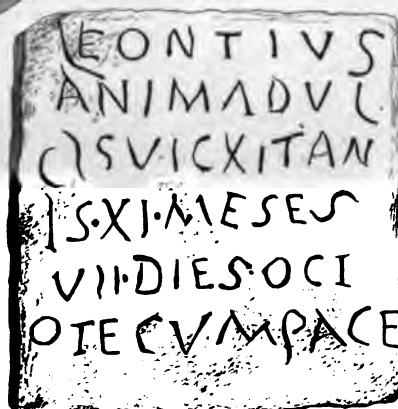 LEONTIVS
ANIMADVL
CISVICXITAN
IS·XI·MESES
VII·DIES·OCI
OTECVMPACE